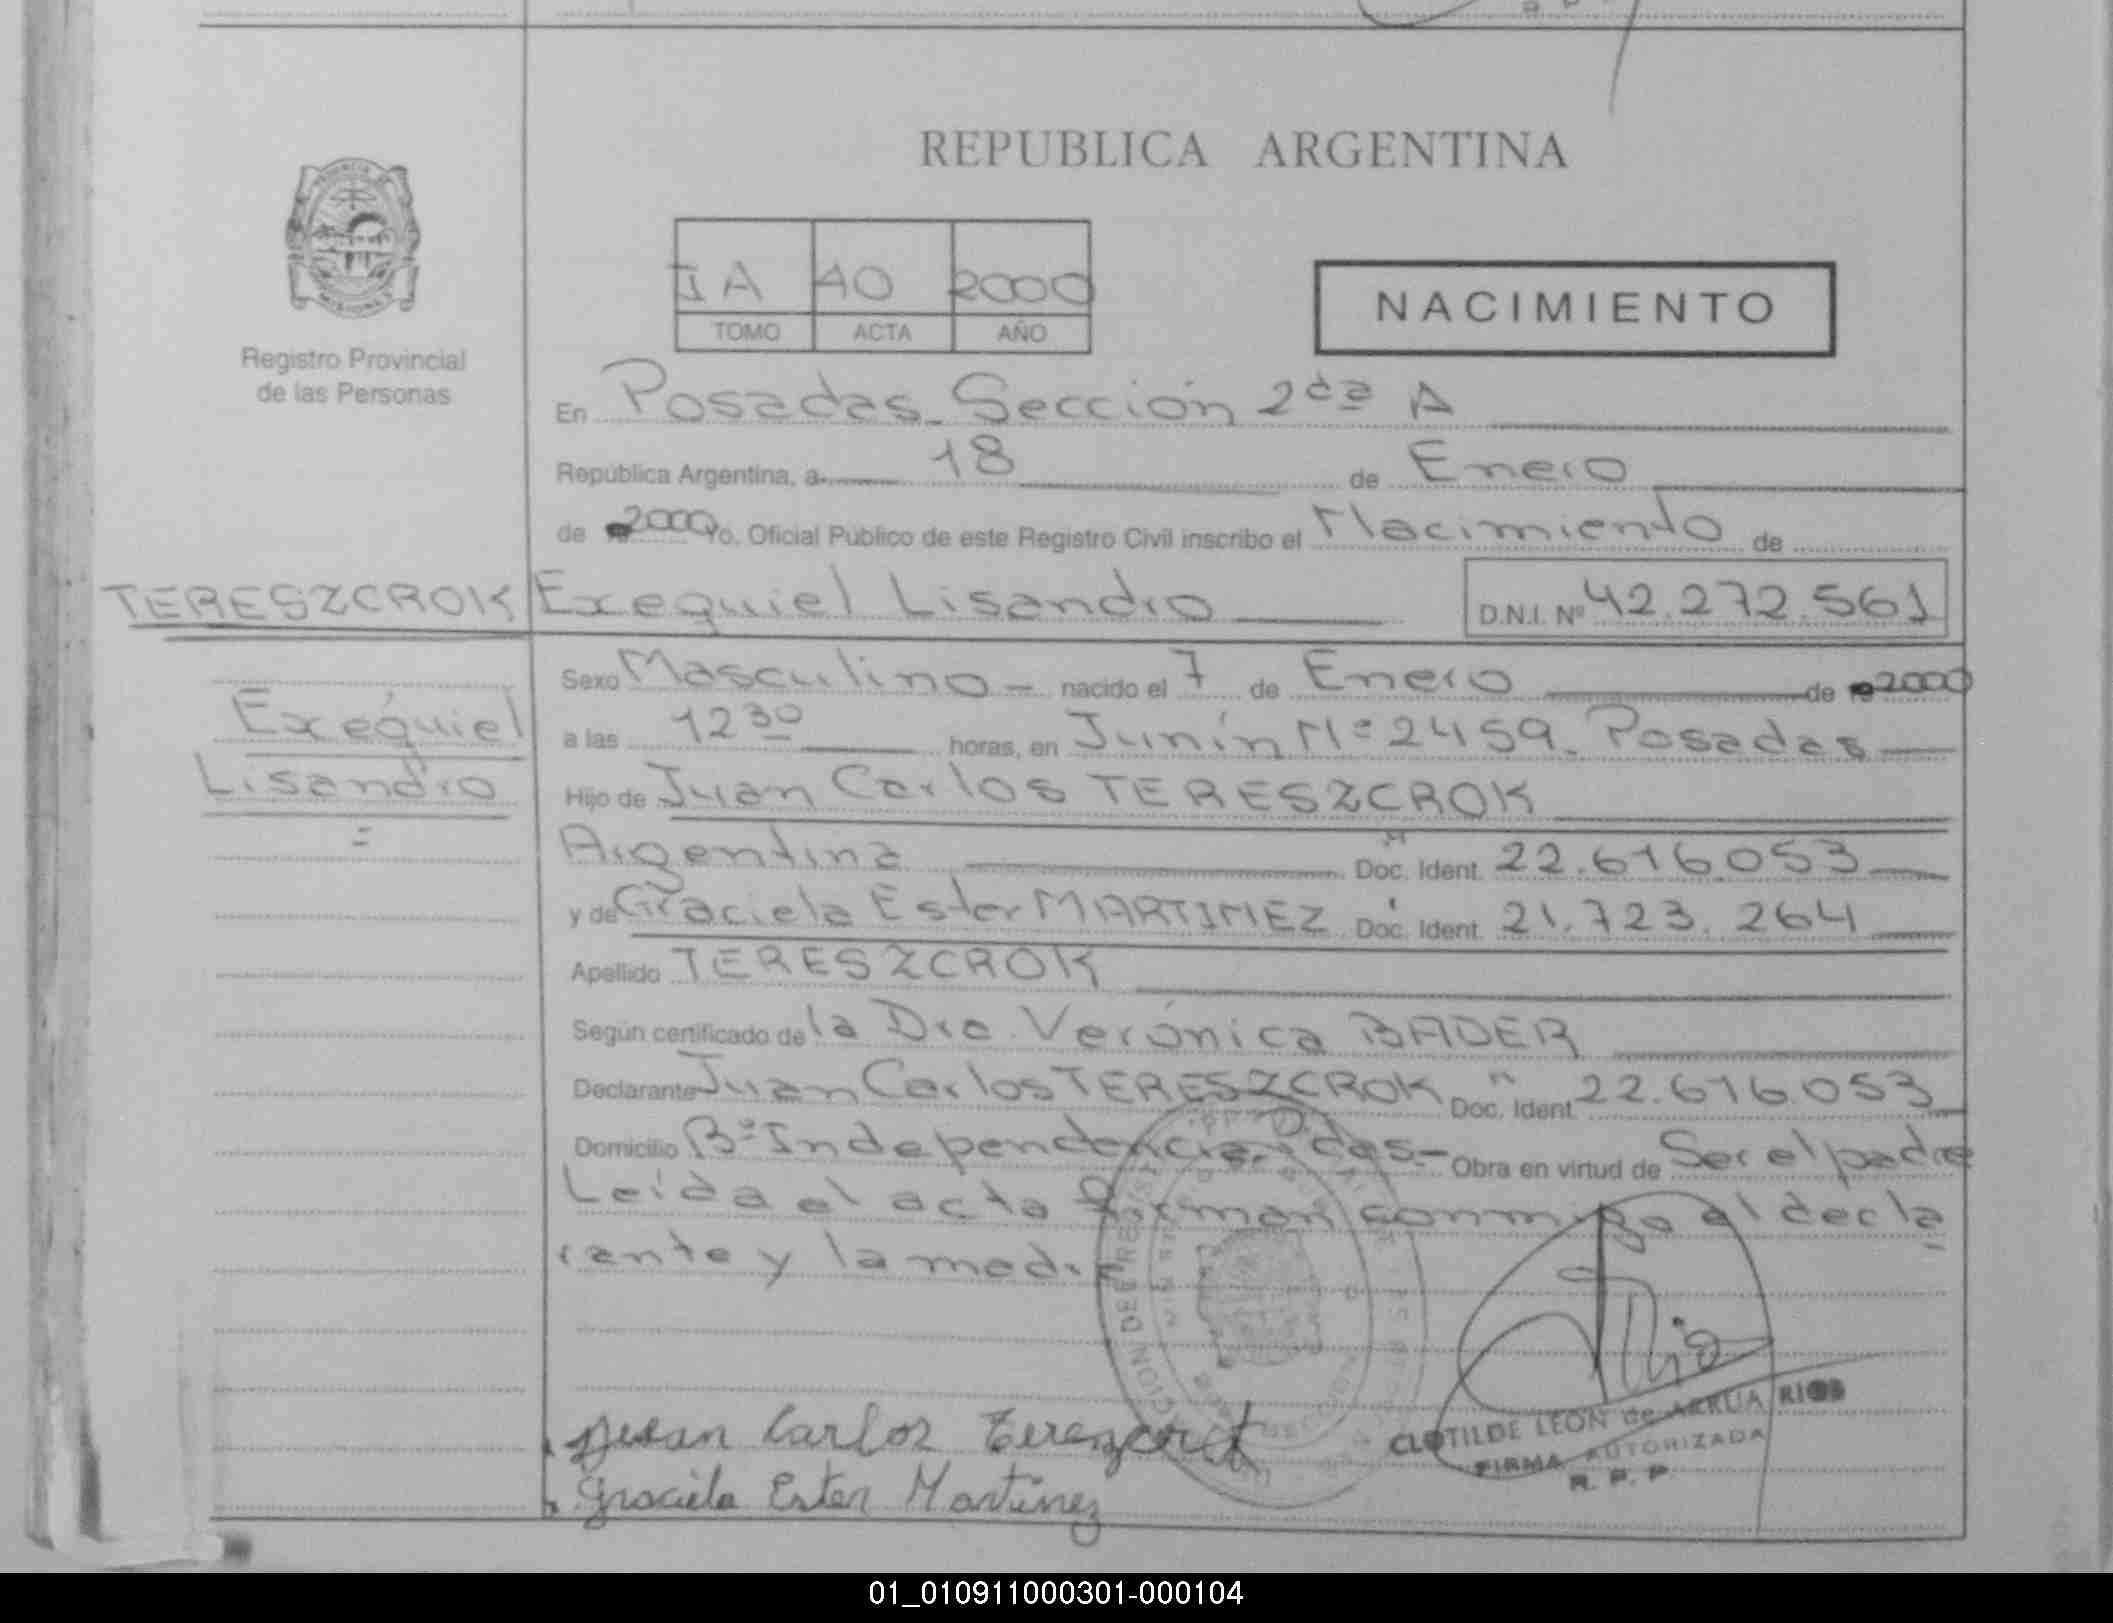 REPUBLICA ARGENTINA
IA 40 2000
TOMO ACTA AÑO
NACIMIENTO
Registro Provincial
de las Personas
En Posadas_Sección 2da A
República Argentina, a 18 de Enero
de 2000 Yo, Oficial Público de este Registro Civil inscribo el Nacimiento de
TERESZCROK Exequiel Lisandro D.N.I. Nº 42.272.561
Exequiel
Lisandro
=
Sexo Masculino - nacido el 7 de Enero de 2000
a las 12 30 horas, en Junín Nº 2459. Posadas
Hijo de Juan Carlos TERESZCROK
Argentina Doc. Ident. 22.616.053
y de Graciela Ester MARTINEZ Doc. Ident. 21.723.264
Apellido TERESZCROK
Según certificado de la Dra. Verónica BADER
Declarante Juan Carlos TERESZCROK Doc. Ident. 22.616.053
Domicilio Bº Independencia Obra en virtud de Ser el padre
Leída el acta firman conmigo el decla
rante y la madre
Juan Carlos Tereszcrok
Graciela Ester Martinez
CLOTILDE LEON de ARRUA RIOS
FIRMA AUTORIZADA
R. P. P.
01_010911000301-000104